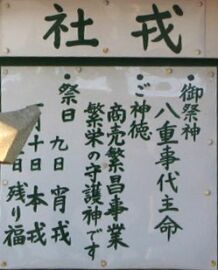 戎社
・御祭神
八重事代主命
・ご神徳
商売繁昌事業
繁栄の守護神です
・祭日
九日 宵戎
十日 本戎
日 残り福